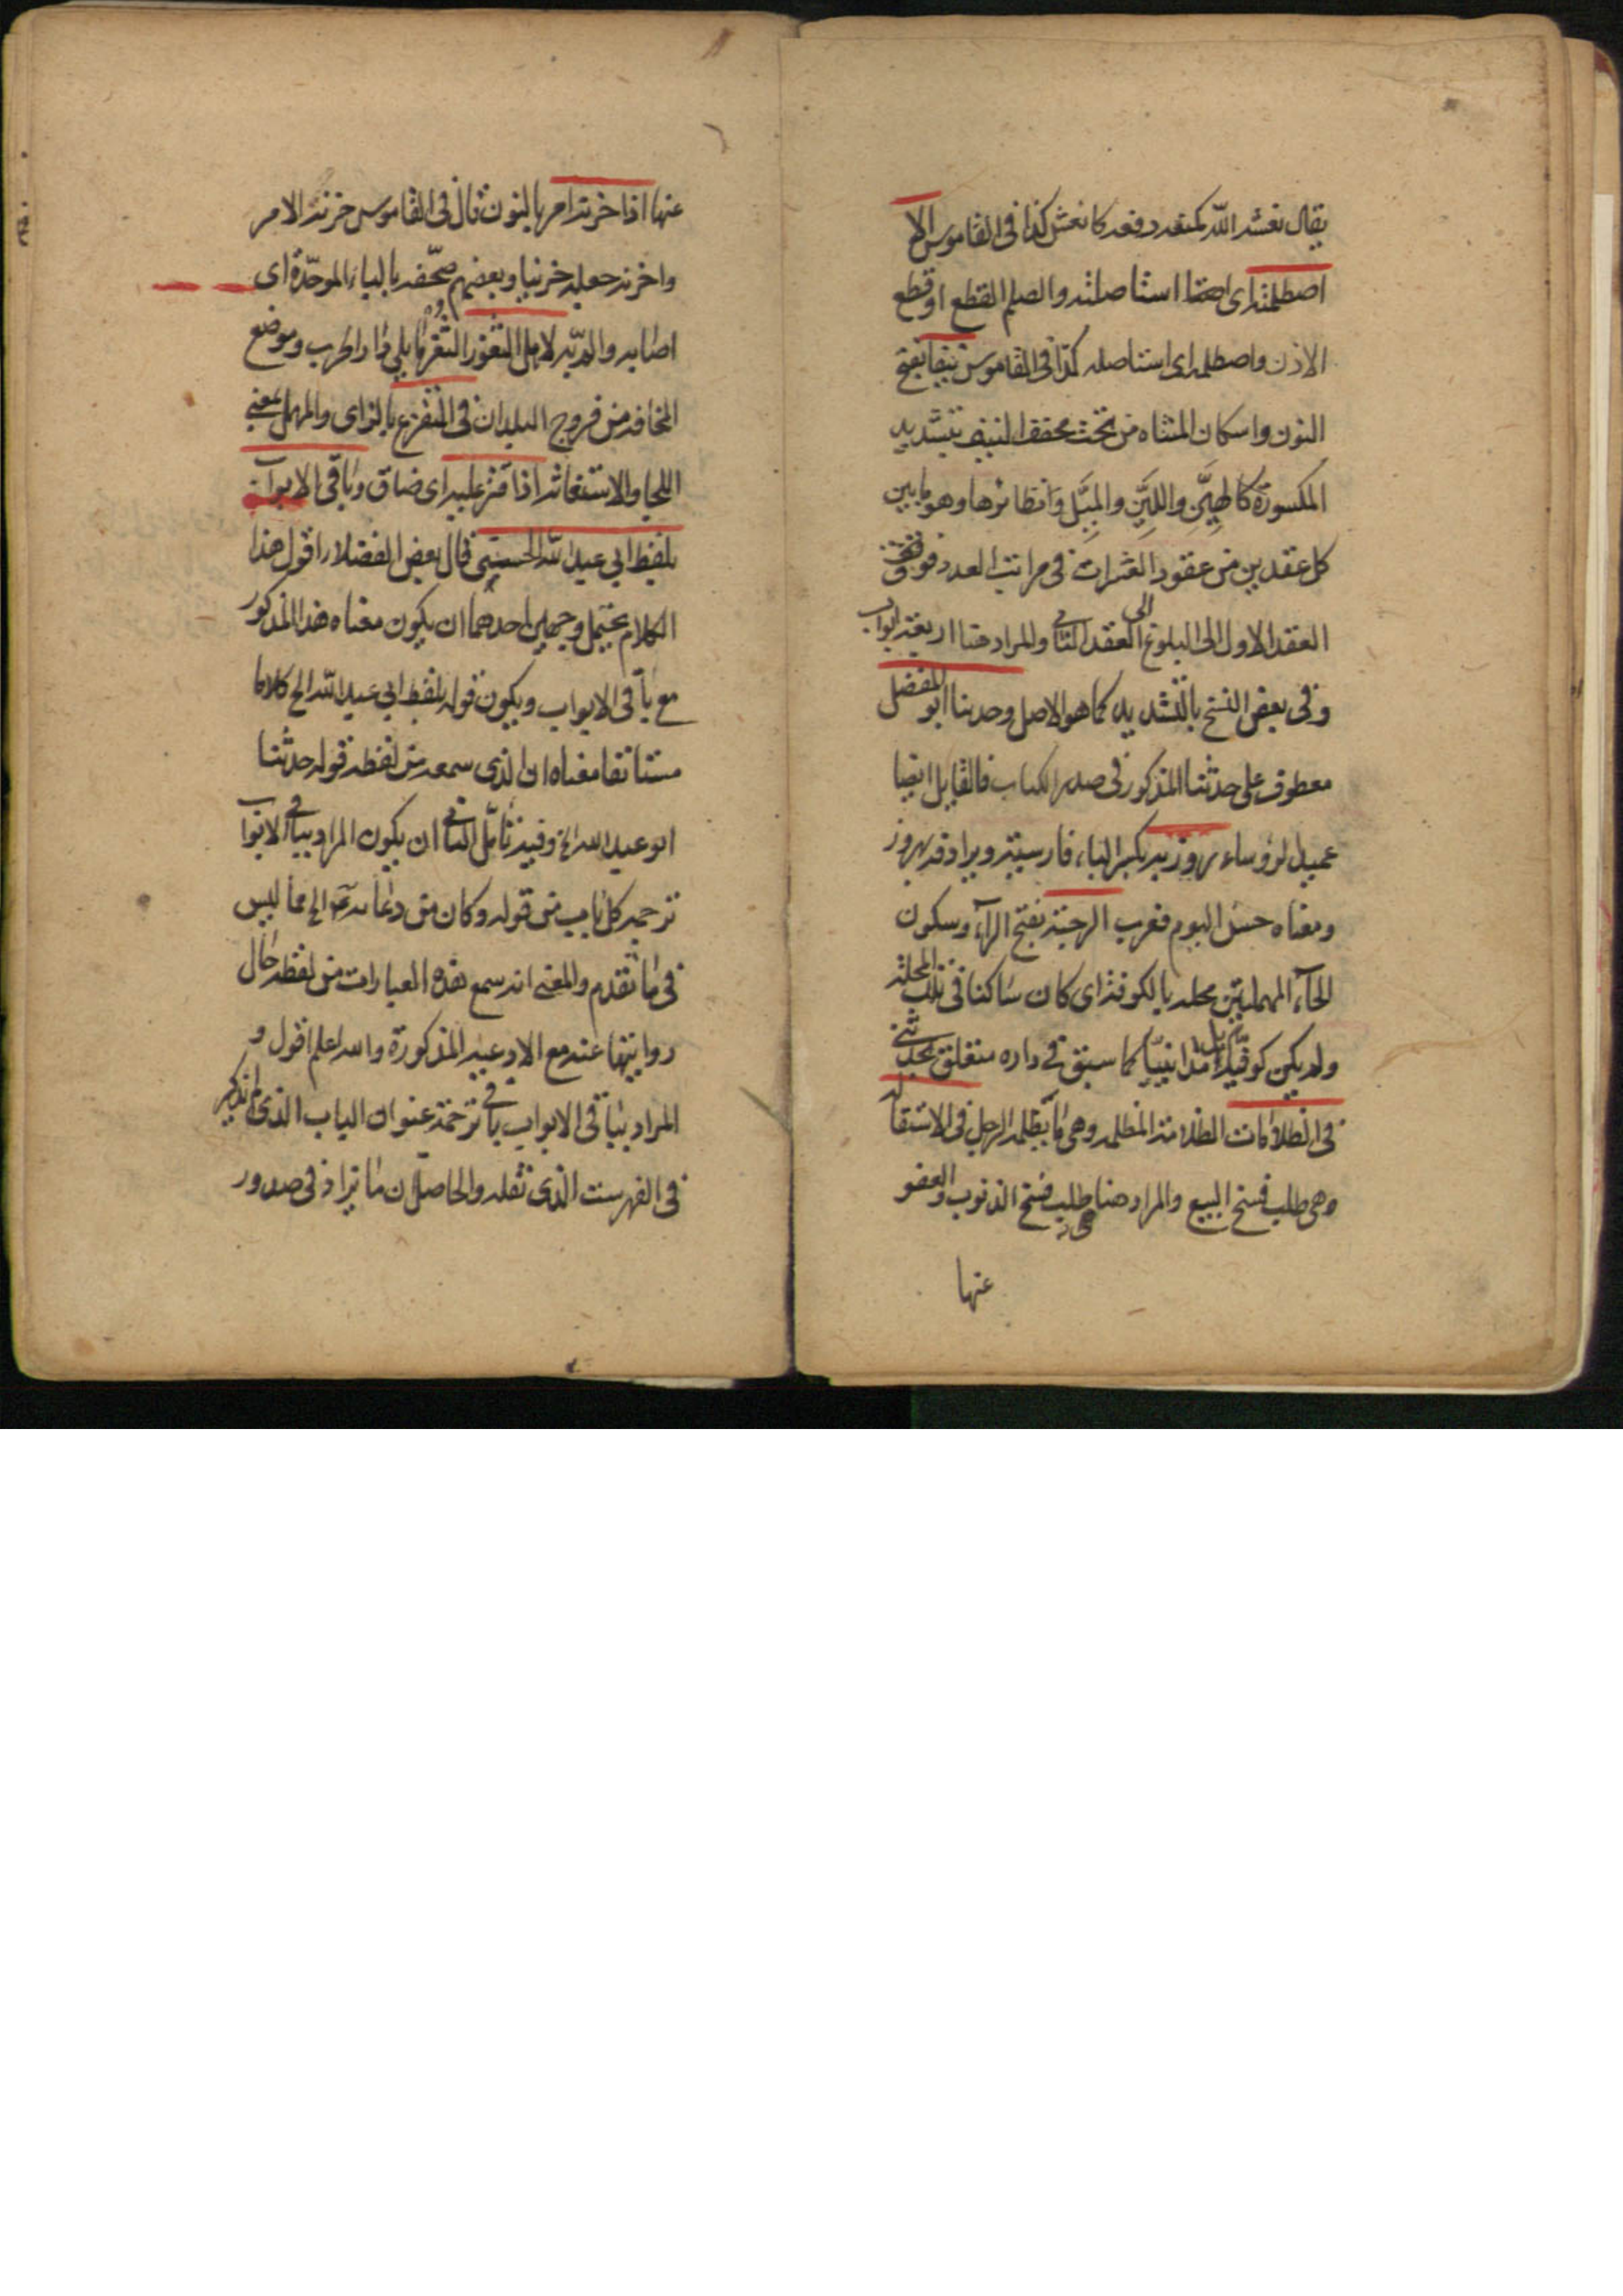 يقال نعشه الله كمنعه رفعه كانعش كذا في القاموس الا
اصطلمته اي استاصلته والصلم القطع او قطع
الاذن واصطلمه اي استاصله كذا في القاموس نيفا بفتح
النون واسكان المثناه من تحت مخفف النيف بتشديد
المكسورة كالهين واللين والميل ونظائرها وهو ما بين
كل عقدين من عقود العشرات في مراتب العدد فوق
العقد الاول الى البلوغ الى العقد الثاني والمراد هنا اربعة ابواب
وفي بعض النسخ بالتشديد كما هو الاصل وحدثنا ابو المفضل
معطوف على حدثنا المذكور في صدر الكتاب فالقايل ايضا
عميد الرؤساء بروزبه بكسر الباء فارسية ويرادفه بهروز
ومعناه حسن اليوم فعرب الرحبة بفتح الراء وسكون
الحاء المهملتين محله بالكوفة اي كان ساكنا في تلك المحلة
ولم يكن كوفيا بل مداينيا كما سبق في داره متعلق بحدثني
في الظلامات الظلامة المظلمه وهي ما يظلمه الرجل في الاستقاله
وهي طلب فسخ البيع والمراد هنا طلب فسخ الذنوب والعفو
عنها
عنها اذا خزنه امر بالنون قال في القاموس خزنه الامر
واخزنه جعله خزينا وبعضهم صحفه بالباء الموحدة اي
اصابه والمديه لاهل الثغور الثغر ما يلي دار الحرب وموضع
المخافه من فروج البلدان في التفزع بالزاى والمهمل بمعنى
اللجا والاستغاثه اذا قتر عليه اي ضاق وباقي الابواب
بلفظ ابي عبد الله الحسني قال بعض الفضلاء اقول هذا
الكلام يحتمل وجهين احدهما ان يكون معناه هذا المذكور
مع باقي الابواب ويكون قوله بلفظ ابي عبد الله الخ كلاما
مستانفا معناه ان الذي سمعه من لفظه قوله حدثنا
ابو عبد الله الخ وفيه تامل الثاني ان يكون المراد بباقي الابواب
ترجمه كل باب من قوله وكان من دعائه ع الخ مما ليس
في ما تقدم والمعنى انه سمع هذه العبارات من لفظه حال
روايتها عنه مع الادعيه المذكورة والله اعلم اقول و
المراد بباقي الابواب باقي ترجمة عنوان الباب الذي لم يذكر
في الفهرست الذي نقله والحاصل ان ما تراد في صدور